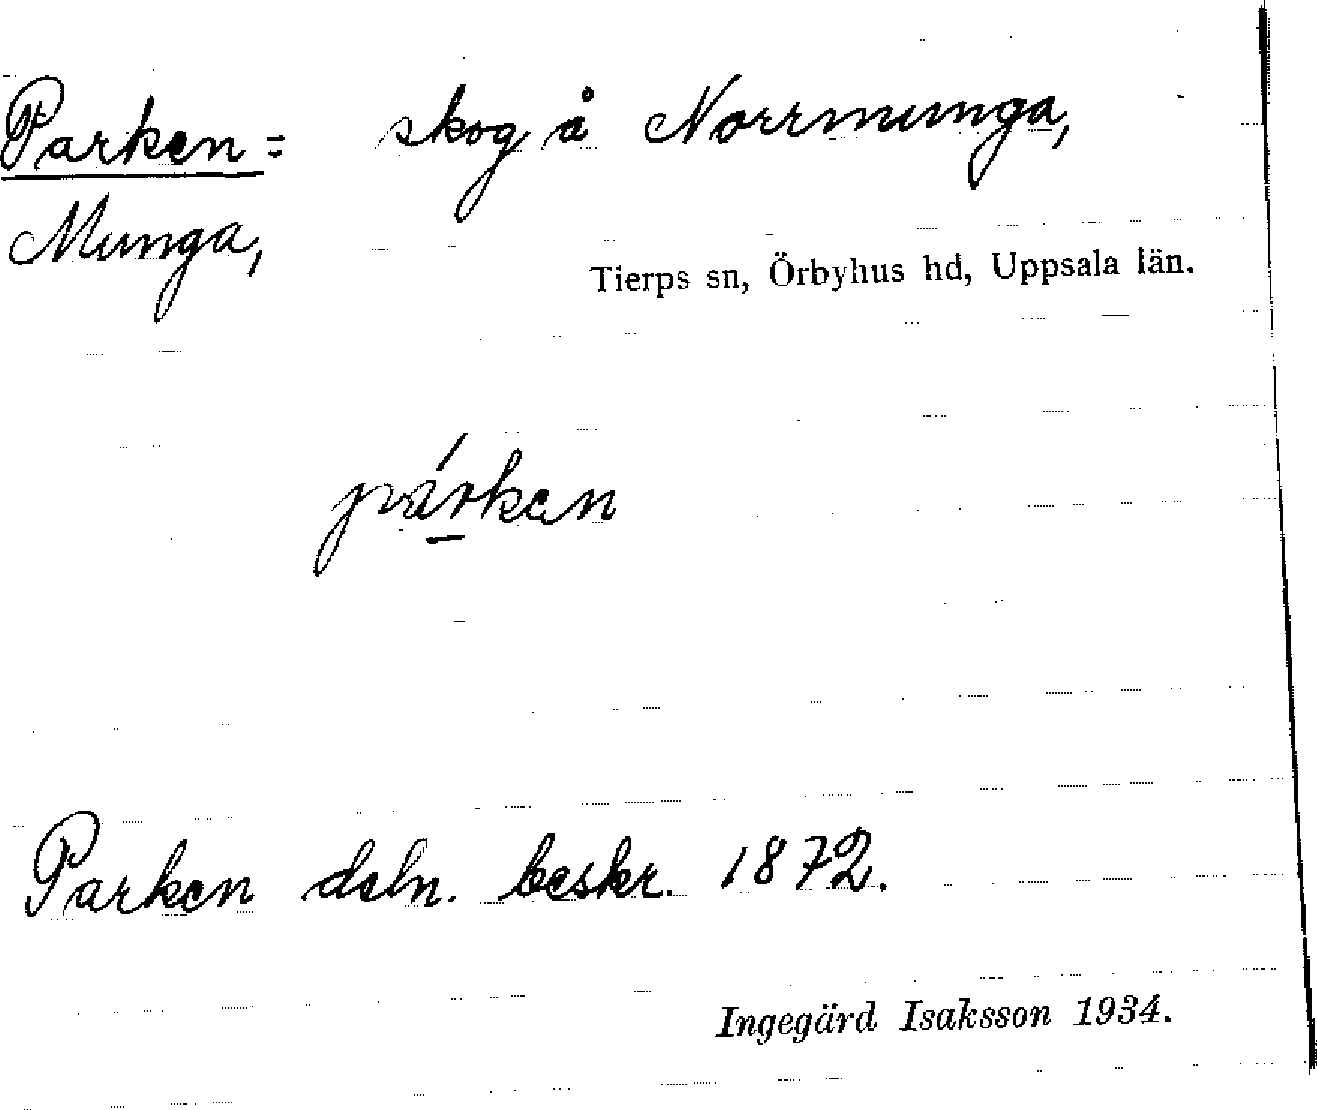 Parken = skog å Norrmunga,
Munga,
Tierps sn, Örbyhus hd, Uppsala län.
párken
Parken deln. beskr. 1872.
Ingegärd Isaksson 1934.